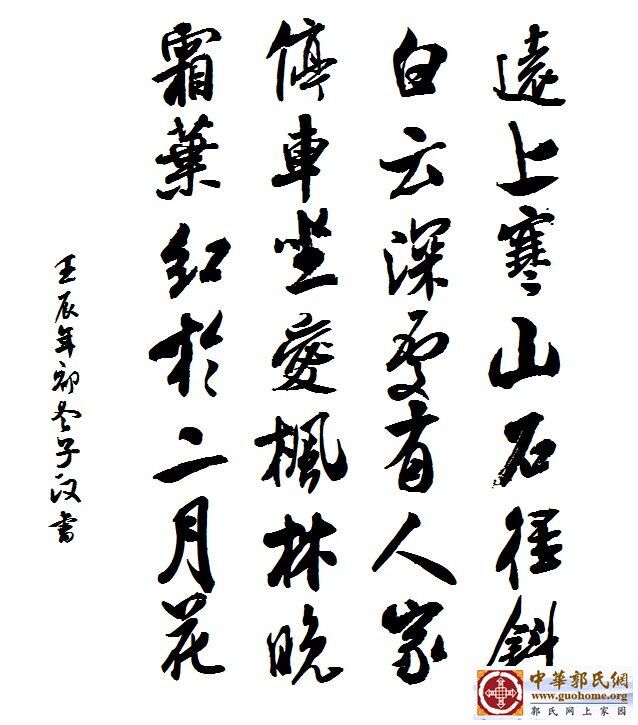 遠上寒山石徑斜
白云深處有人家
停車坐愛楓林晚
霜葉紅於二月花
壬辰年初冬子書
中華郭氏網
www.guohome.org
郭氏网上家园